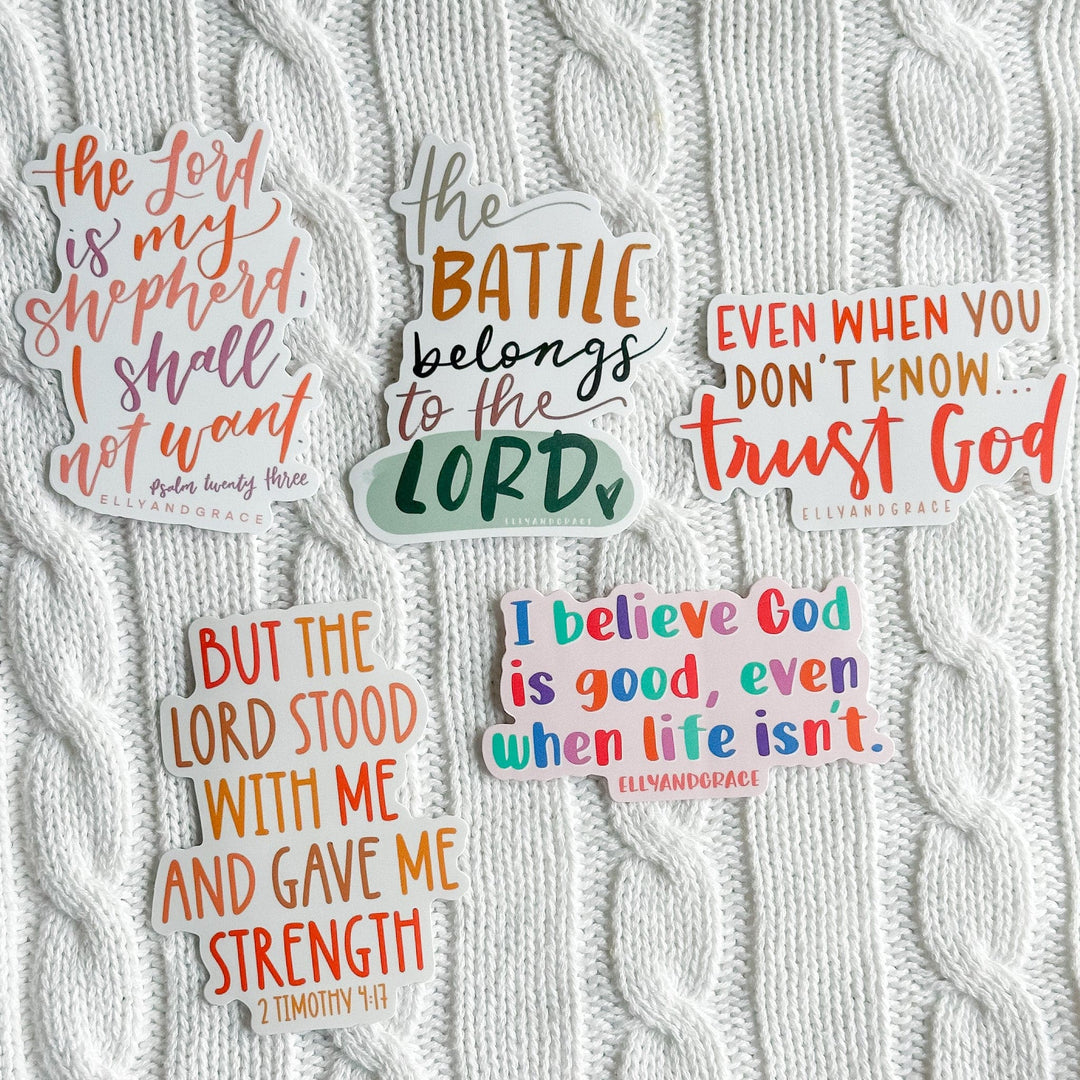 the Lord
is my
shepherd,
I shall
not want.
Psalm twenty three
ELLYANDGRACE
the
BATTLE
belongs
to the
LORD
ELLYANDGRACE
EVEN WHEN YOU
DON'T KNOW...
trust God
ELLYANDGRACE
BUT THE
LORD STOOD
WITH ME
AND GAVE ME
STRENGTH
2 TIMOTHY 4:17
I believe God
is good, even
when life isn't.
ELLYANDGRACE